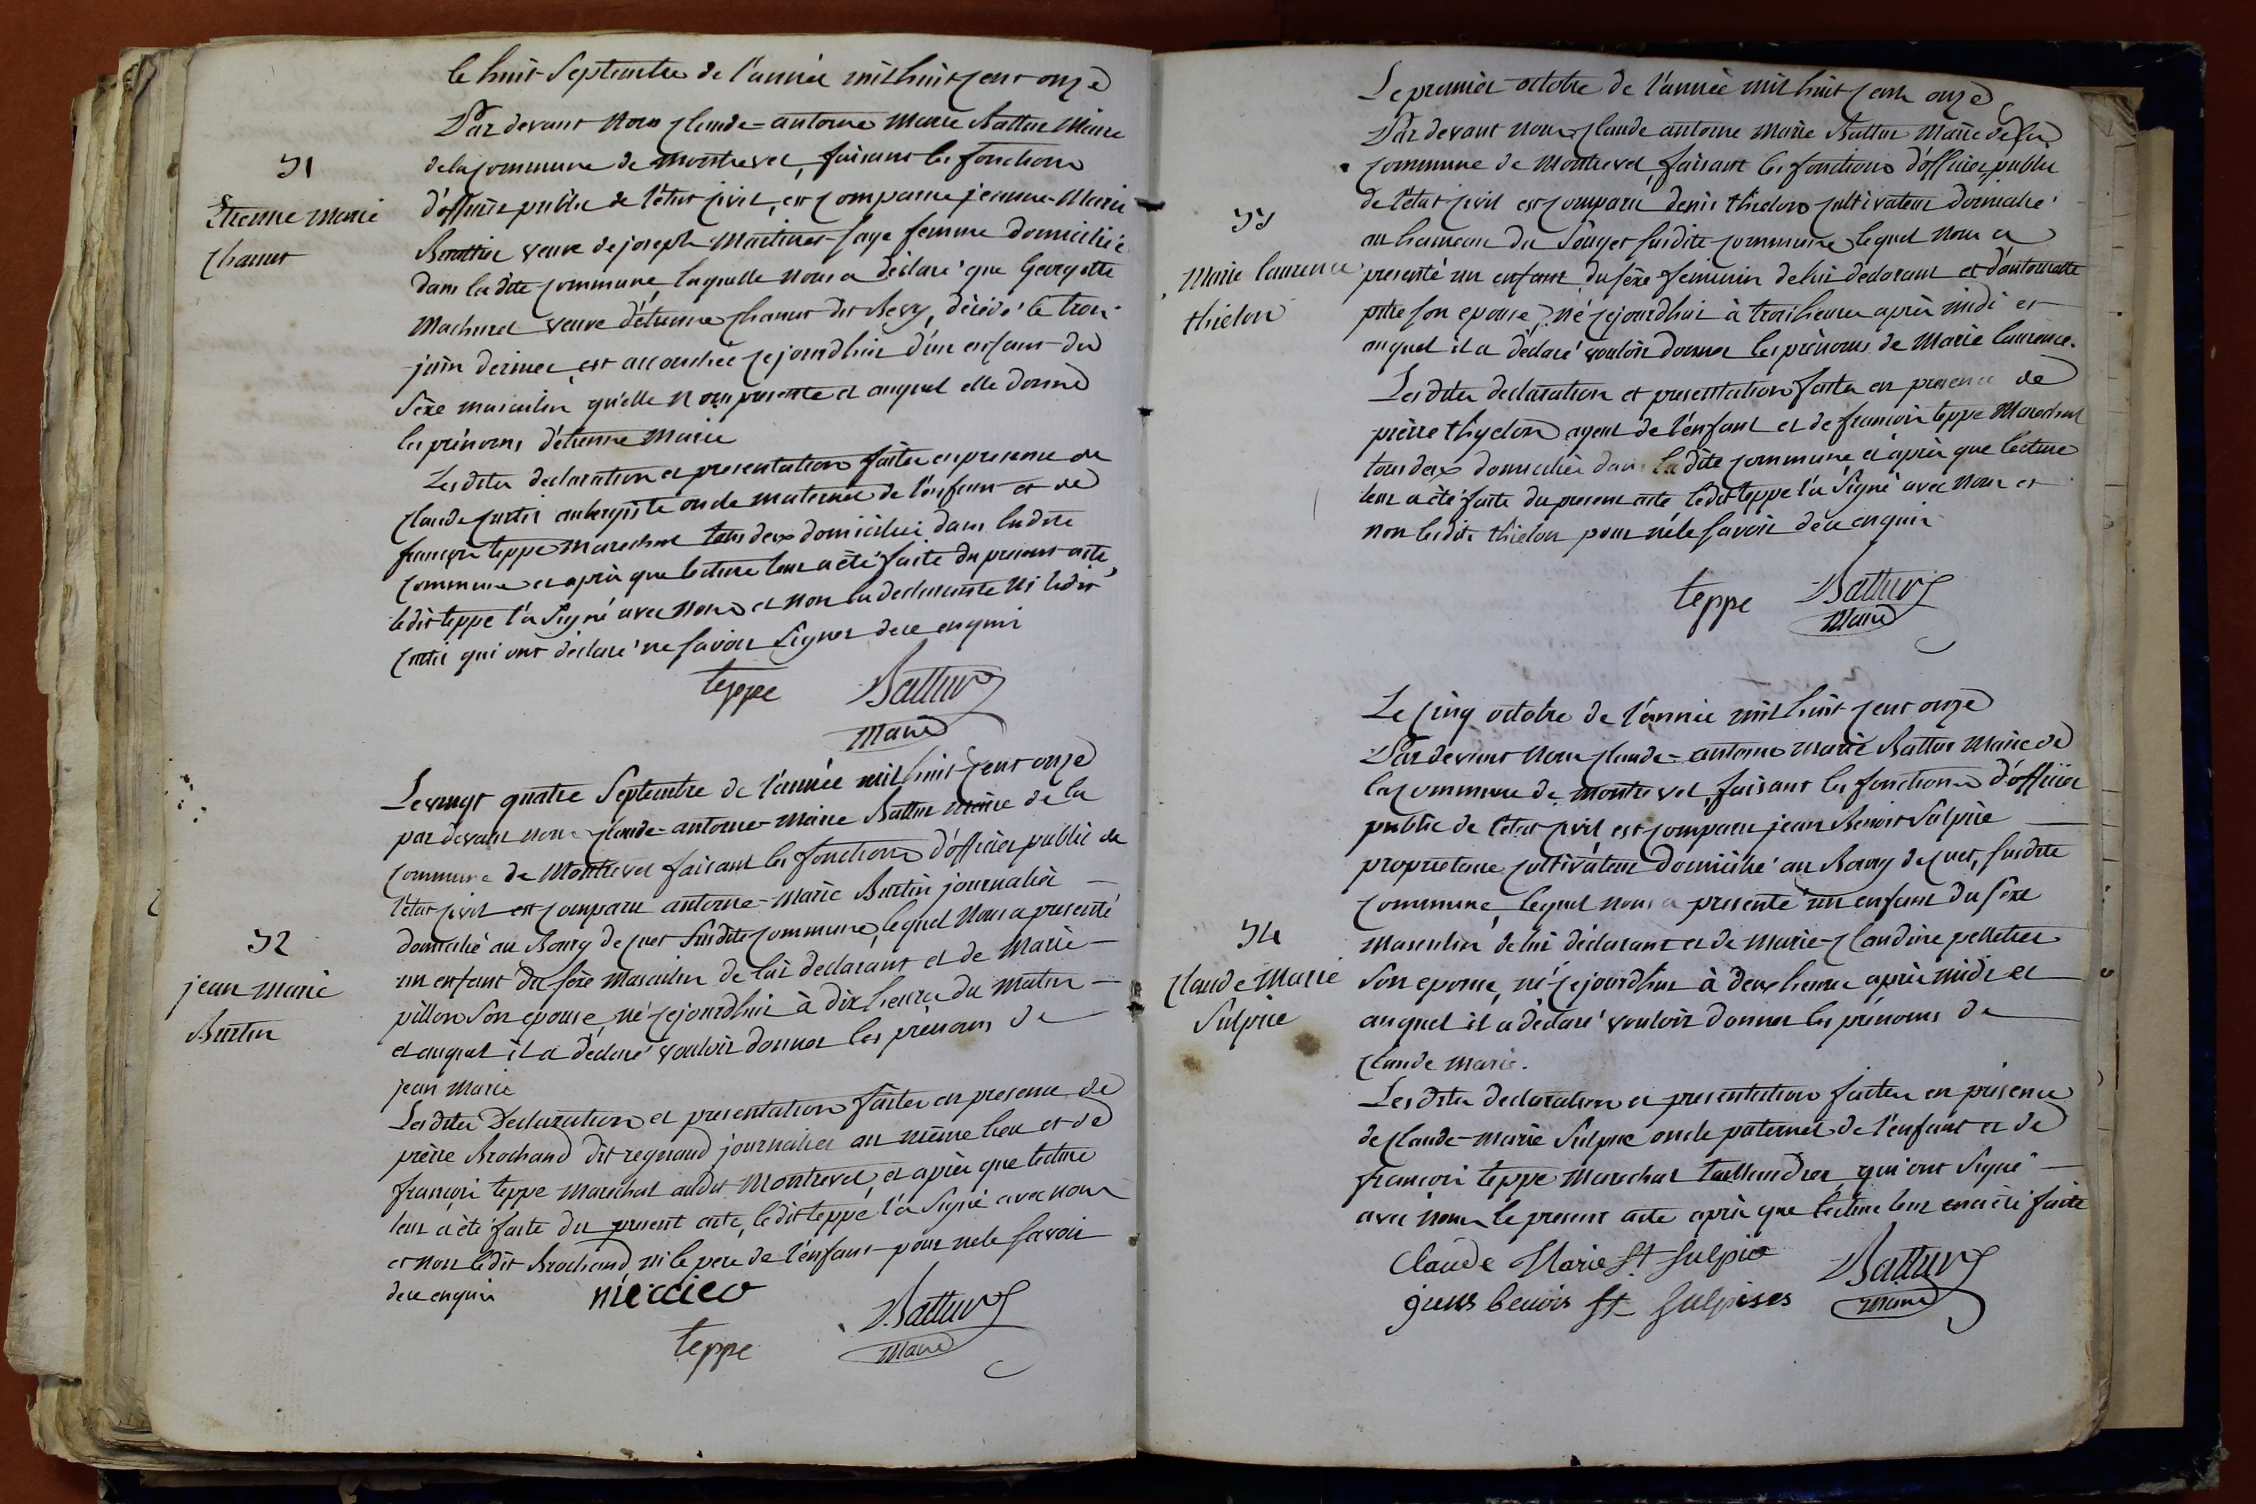 le huit Septembre de l'année mil huit cent onze
Par devant Nous Claude-antoine Marie Battur Maire
31
de la Commune de Montrevel, faisant les fonctions
Etienne Marie
d'officier public de l'état civil, est comparue jeanne-Marie
Chanut
veuve de joseph Martinet sage femme domiciliée
dans la dite commune, laquelle nous a déclaré que Georgette
Machurel veuve d'étienne Chanut dit Revy, décédé le trois
juin dernier, est accouchée cejourdhui d'un enfant du
séxe masculin qu'elle Nous presente et auquel elle donne
les prénoms d'étienne Marie
Lesdites declaration et presentation faites en presence de
Claude Curtis aubergiste oncle maternel de l'enfant et de
françois teppe marechal tous deux domiciliés dans ladite
commune et après que lecture leur a été faite du present acte,
ledit teppe l'a Signé avec Nous et Non la declarante Ni ledit
Curtis qui ont déclaré ne savoir Signer de ce enquis
teppe Battur
Maire
Le vingt quatre Septembre de l'année mil huit cent onze
par devant nous Claude-antoine-Marie Battur Maire de la
Commune de Montrevel faisant les fonctions d'officier public de
l'état civil est comparu antoine-Marie Burtin journalier
32
domicilié au Bourg de Cuet Susdite commune, lequel Nous a presenté
jean marie
un enfant du séxe Masculin de lui declarant et de Marie
Burtin
pillon Son epouse, né cejourdhui à dix heures du Matin
et auquel il a déclaré vouloir donner les prénoms de
jean Marie
Lesdites Declaration et presentation faites en presence de
pierre Brochand dit regnaud journalier au même lieu et de
françois teppe Marechal audit Montrevel, et après que lecture
leur a été faite du present acte, ledit teppe l'a Signé avec nous
et Non ledit Brochand, ni le pere de l'enfant pour ne le savoir
de ce enquis
Battur
teppe Maire
Le premier octobre de l'année mil huit cent onze
Par devant nous Claude antoine Marie Battur Maire de la
commune de Montrevel faisant les fonctions d'officier public
33
de l'état civil est comparu denis thielon cultivateur domicilié
au hameau du Souget susdite commune lequel Nous a
Marie laurence
presenté un enfant du séxe féminin de lui declarant et d'antoinette
thielon
pitre son epouse, né cejourdhui à trois heures après midi et
auquel il a déclaré vouloir donner les prénoms de Marie laurence.
Lesdites declaration et presentation faites en presence de
pierre thyelon ayeul de l'enfant et de françois teppe Marechal
tous deux domiciliés dans la dite commune et après que lecture
leur a été faite du present acte, ledit teppe l'a Signé avec Nous et
non lesdits thielon pour ne le savoir de ce enquis
teppe Battur
Maire
Le cinq octobre de l'année mil huit cent onze
Par devant Nous Claude-antoine Marie Battur Maire de
la commune de Montrevel, faisant les fonctions d'officier
public de l'état civil, est comparu jean Benoit Sulpice
proprietaire cultivateur domicilié au Bourg de Cuet, susdite
commune, lequel nous a presenté un enfant du séxe
34
masculin de lui déclarant et de Marie-Claudine pelletier
Claude Marie
Son epouse, né cejourdhui à deux heures après midi et
Sulpice
auquel il a déclaré vouloir donner les prénoms de
Claude Marie.
Lesdites declaration et presentation faites en présence
de Claude-Marie Sulpice oncle paternel de l'enfant et de
françois teppe Marechal taillandier qui ont Signé
avec nous le present acte après que lecture leur en a été faite
Claude Marie St Sulpice Battur
benois St Sulpises Maire